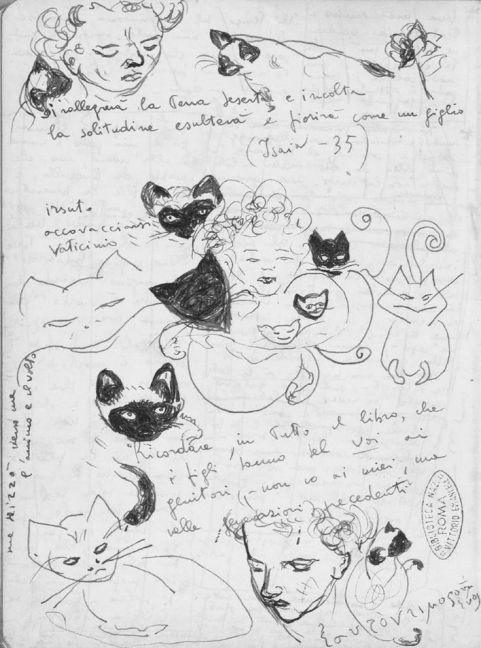 si rallegrerà la Terra deserta e incolta
la solitudine esulterà e fiorirà come un giglio
(Isaia - 35)
irsuto
accovacciarsi
Vaticinio
Ricordare, in Tutto il libro, che
i figli danno del Voi ai
genitori (- non io ai miei, ma
nelle generazioni precedenti
e indirizzò verso me
l'animo e il volto
BIBLIOTECA NAZ
ROMA
VITTORIO EMANUELE